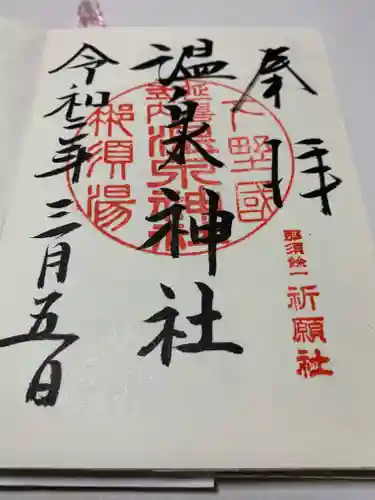 奉拝
下野國
延喜式内温泉神社
那須湯
温泉神社
那須餘一
祈願社
令和二年三月五日